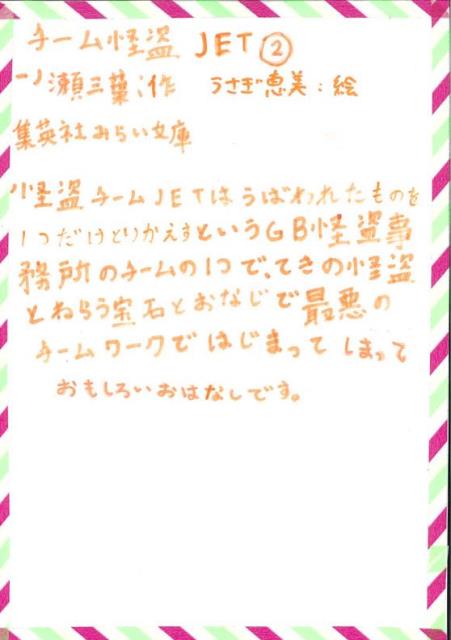 チーム怪盗 JET②
一ノ瀬三葉:作 うさぎ恵美:絵
集英社みらい文庫
怪盗チームJETはうばわれたものを
1つだけとりかえすというGB怪盗事
務所のチームの1つで、てきの怪盗
とねらう宝石とおなじで最悪の
チームワークではじまってしまって
おもしろいおはなしです。